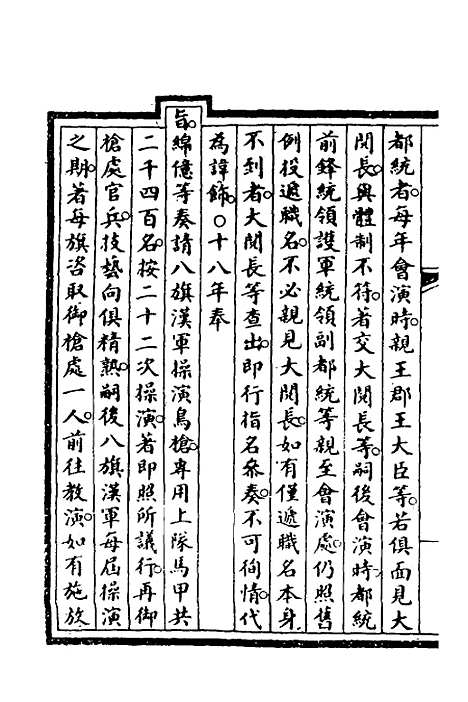 都統者。每年會演時。親王郡王大臣等。若俱面見大
閱長。與體制不符。著交大閱長等。嗣後會演時。都統
前鋒統領護軍統領副都統等。親至會演處。仍照舊
例投遞職名。不必親見大閱長。如有僅遞職名。本身
不到者。大閱長等查出。即行指名參奏。不可徇情。代
為諱飾。○十八年奉
旨。綿億等奏請八旗漢軍操演鳥槍。專用上隊馬甲共
二千四百名。按二十二次操演。著即照所議行。再御
槍處官兵。技藝向俱精熟。嗣後八旗漢軍每屆操演
之期。著每旗咨取御槍處一人。前往教演。如有施放